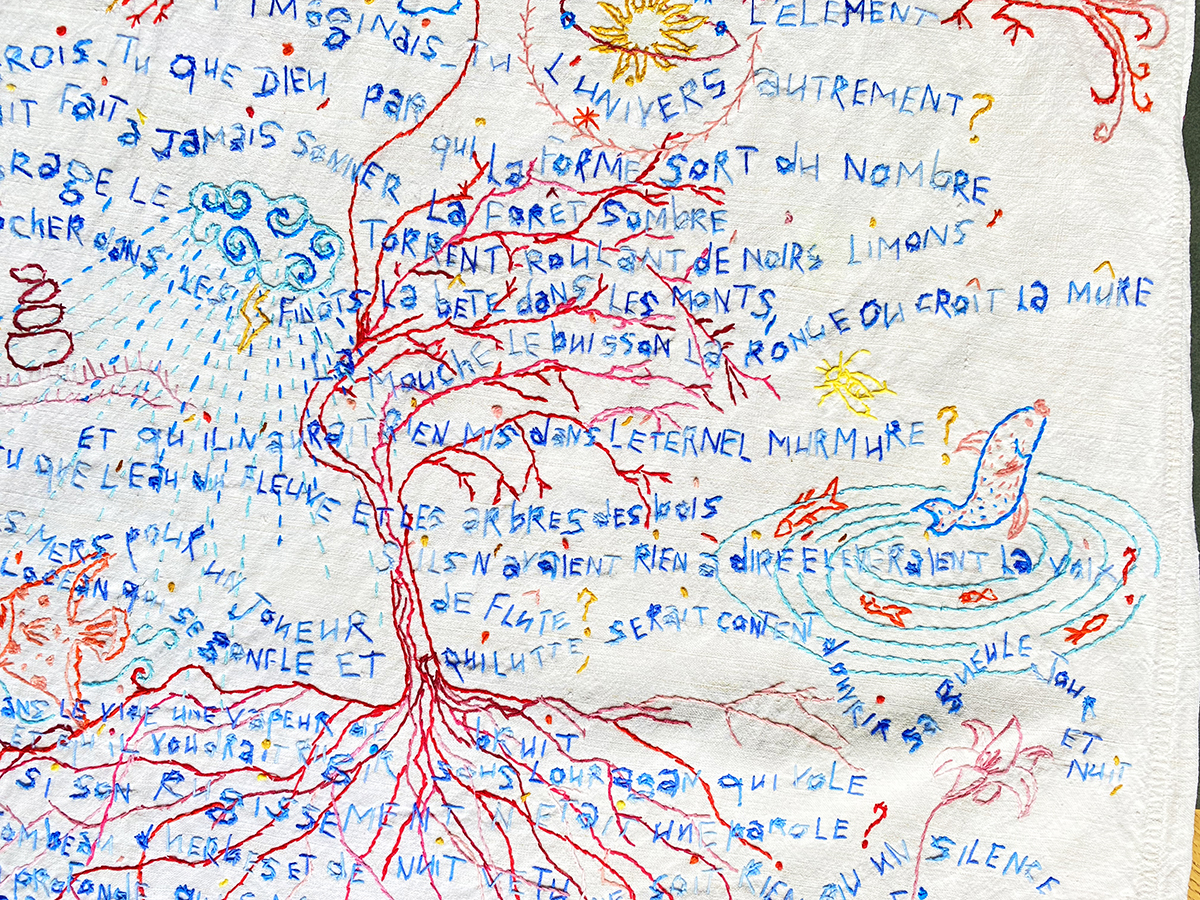 T'IMAGINAIS-TU L'UNIVERS AUTREMENT ?
L'ELEMENT
ROIS-TU QUE DIEU PAR QUI LA FORME SORT DU NOMBRE
AIT FAIT à JAMAIS SONNER LA FORÊT SOMBRE
RAGE, LE TORRENT ROULANT DE NOIRS LIMONS
OCHER DANS LES FLOTS LA BÊTE DANS LES MONTS,
LA MOUCHE LE BUISSON LA RONCE OU CROÎT LA MÛRE
ET QU'IL N'AURAIT RIEN MIS DANS L'ETERNEL MURMURE ?
TU QUE L'EAU DU FLEUVE ET LES ARBRES DES BOIS
S'ILS N'AVAIENT RIEN à DIRE ELEVERAIENT LA VOIX ?
ES MERS POUR UN JOUEUR DE FLUTE ?
L'OCEAN QUI SE GONFLE ET QUI LUTTE
SERAIT CONTENT D'OUVRIR SA GUEULE JOUR ET NUIT
ANS LE VIDE UNE VAPEUR DE BRUIT
ET QU'IL VOUDRAIT RUGIR SOUS L'OURAGAN QUI VOLE
SI SON RUGISSEMENT N'ETAIT UNE PAROLE ?
OMBEAU D'HERBES ET DE NUIT VETU
SOIT RIEN QU'UN SILENCE
PROFONDE